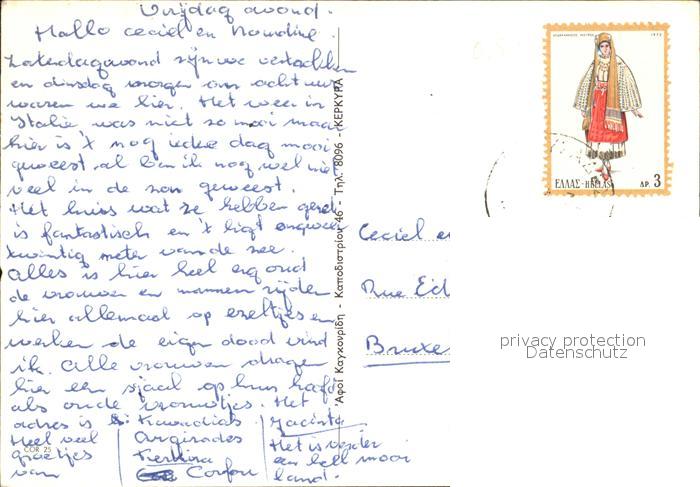 Vrijdag avond.
Hallo Ceciel en
Zaterdagavond zijn we vertrokken
en dinsdag morgen om acht uur
waren we hier. Het weer in
Italië was niet zo mooi maar
hier is 't nog iedere dag mooi
geweest al ben ik nog wel niet
veel in de zon geweest.
Het huis wat ze hebben
is fantastisch en 't ligt ongeveer
twintig meter van de zee.
Alles is hier heel erg oud
de vrouwen en mannen rijden
hier allemaal op ezeltjes en
werken de eigen dood vind
ik. Alle vrouwen dragen
hier een sjaal op hun hoofd
als oude vrouwtjes. Het
adres is
Heel veel
groetjes
van
Argirades
Kerkira
Corfou
Jacinta
Het is verder
een heel mooi
land.
COR 25
Ἀφοὶ Καγκουρίδη - Καποδιστρίου 46 - Τηλ. 8096 - ΚΕΡΚΥΡΑ
1972
ΕΛΛΑΣ-HELLAS ΔΡ. 3
Ceciel e
Rue Ed
Bruxe
privacy protection
Datenschutz